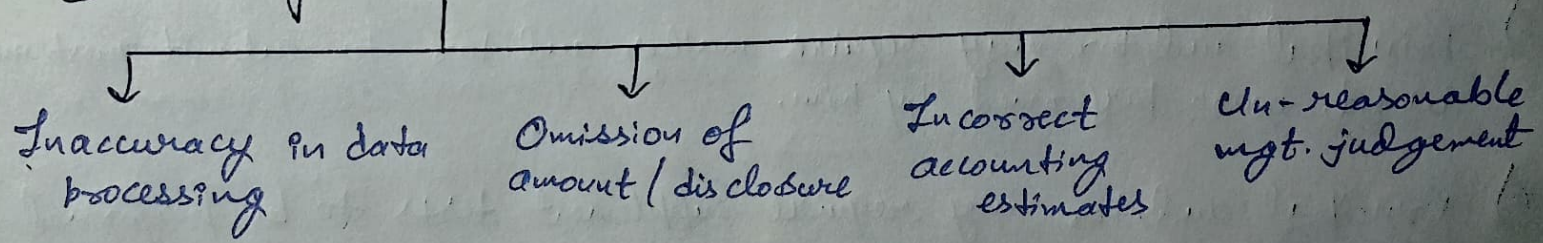 Inaccuracy in data
processing
Omission of
amount / disclosure
Incorrect
accounting
estimates
Un-reasonable
mgt. judgement